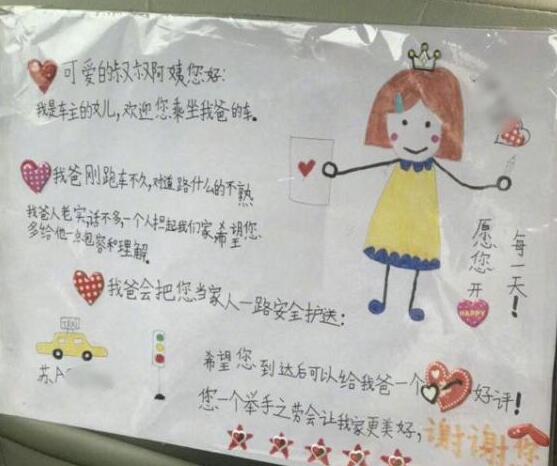 可爱的叔叔阿姨您好:
我是车主的女儿,欢迎您乘坐我爸的车。
我爸刚跑车不久,对道路什么的不熟
我爸人老实,话不多,一个人担起我们家希望您
多给他一点包容和理解。
我爸会把您当家人一路安全护送:
愿您开
HAPPY
每一天!
TAXI
苏A
希望您到达后可以给我爸一个
好评!
您一个举手之劳会让我家更美好,谢谢你